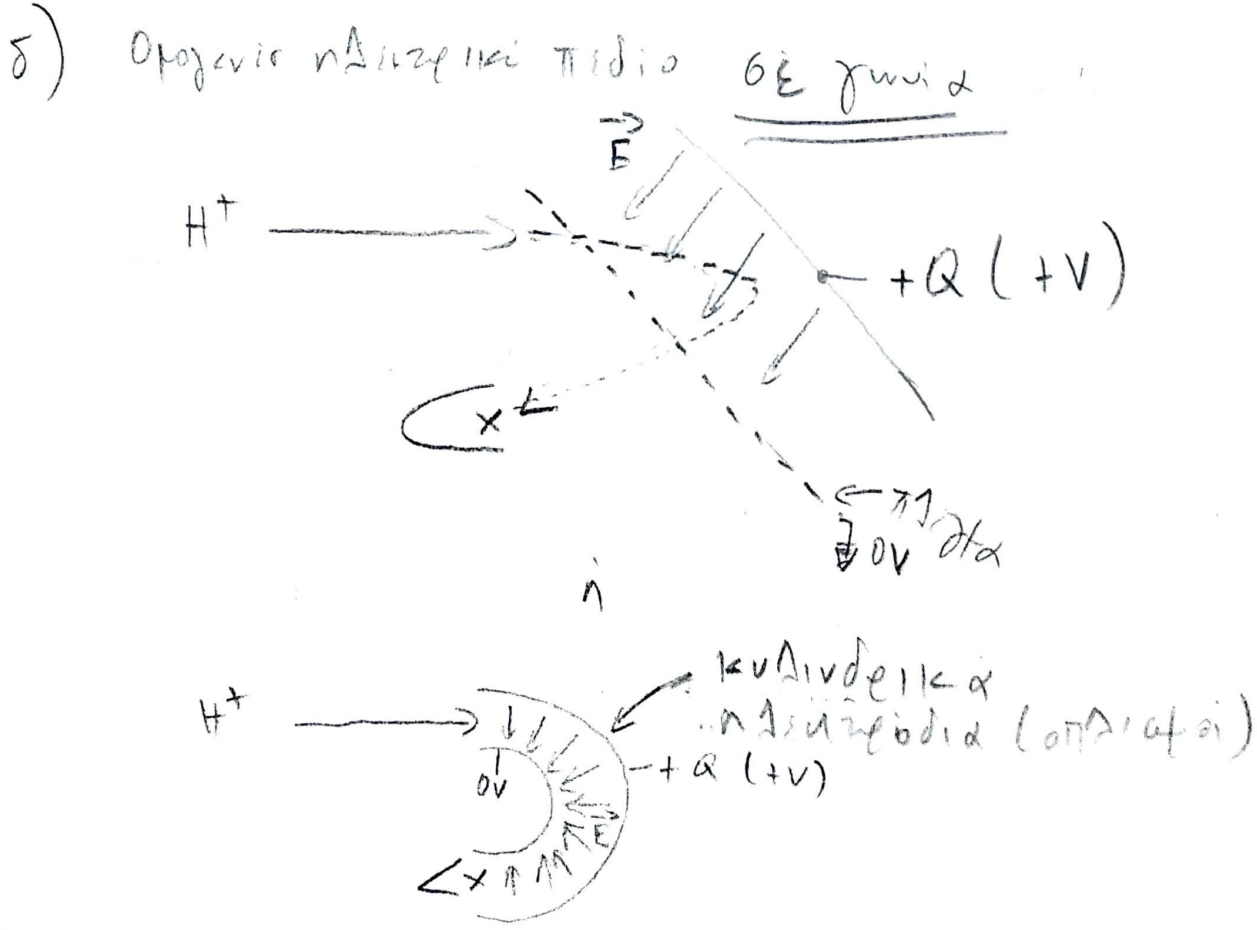 δ) Ομογενές ηλεκτρικό πεδίο σε γωνία
E
H⁺
+Q (+V)
X
← πλέγμα
0V
ή
κυλινδρικά
H⁺
ηλεκτρόδια (οπλισμοί)
+Q (+V)
0V
E
X